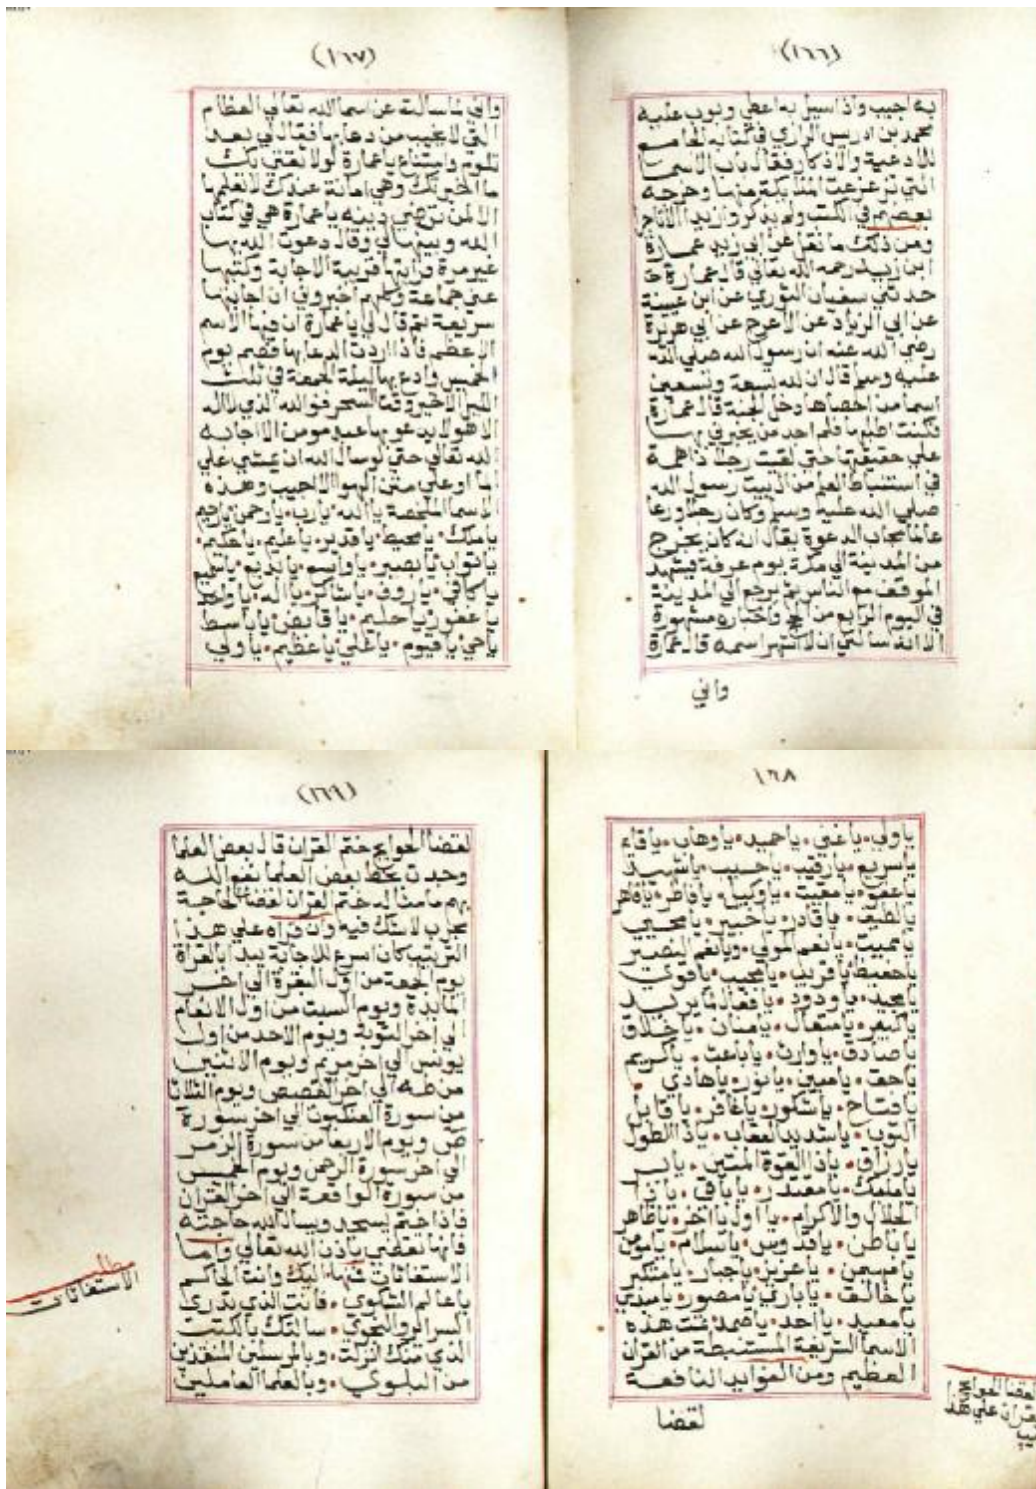 (١٦٦)
به اجيب واذا سيل به اعطي وبوب عليه
محمد بن ادريس الرازي في كتابه الجامع
للادعية والاذكار فقال باب الاسما
التي نزعزعت الملايكة منها وخرجه
بعضهم في الكتب ولم يذكر وازيد
ومن ذلك ما نقل عن ابي زيد عمارة
ابن زيد رحمه الله تعالي قال عمارة
حدثني سفيان الثوري عن ابن عيينة
عن ابي الزناد عن الاعرج عن ابي هريرة
رضي الله عنه ان رسول الله صلي الله
عليه وسلم قال ان لله تسعة وتسعين
اسما من احصاها دخل الجنة قال عمارة
فكنت اطلبها فلم اجد من يخبرني بها
علي حقيقتها حتي لقيت رجلا ذا همة
في استنباط العلم من ال بيت رسول الله
صلي الله عليه وسلم وكان رجلا ورعا
عالما مجاب الدعوة يقال انه كان يخرج
من المدينة الي مكة يوم عرفة فيشهد
الموقف مع الناس ثم يرجع الي المدينة
في اليوم الرابع من الحج واخباره مشهورة
الا انه سالني ان لا اشهر اسمه قال عمارة
واني
(١٦٧)
واني لما سالته عن اسما الله تعالي العظام
التي لا يخيب من دعا بها فقال لي بعد
تلوم وامتناع يا عمارة لولا ثقتي بك
ما اخبرتك وهي امانة عندك لا تعلمها
الا لمن ترضي دينه يا عمارة هي في كتاب
الله وبينها لي وقال دعوت الله بها
غير مرة فرايتها قريبة الاجابة وكتبها
عني جماعة وكلهم اخبروني ان اجابتها
سريعة ثم قال لي يا عمارة ان فيها الاسم
الاعظم فاذا اردت الدعا بها فصم يوم
الخميس وادع بها ليلة الجمعة في ثلث
الليل الاخير وقت السحر فوالله الذي لا اله
الا هو لا يدعو بها عبد مومن الا اجابه
الله تعالي حتي لو سال الله ان يمشي علي
الما او علي متن الهوا لاجيب وهذه
الاسما الملخصة يا الله • يا رب • يا رحمن يا رحيم
يا ملك • يا محيط • يا قدير • يا عليم • يا حكيم •
يا تواب يا بصير • يا واسع • يا بديع • يا سميع
يا كافي • يا روف • يا شاكر • يا اله • يا واحد
يا غفور يا حليم • يا قابض • يا باسط
يا حي • يا قيوم • يا علي • يا عظيم • يا ولي
١٦٨
يا ولي • يا غني • يا حميد • يا وهاب •
يا سريع • يا رقيب • يا حسيب • يا شهيد
يا عفو • يا مقيت • يا وكيل • يا فاطر • يا قاهر
يا لطيف • يا قادر • يا خبير • يا محيي
يا مميت • يا نعم المولي • ويا نعم النصير
يا حفيظ • يا قريب • يا مجيب • يا قوي
يا مجيد • يا ودود • يا فعال لما يريد
يا كبير • يا متعال • يا منان • يا خلاق
يا صادق • يا وارث • يا باعث • يا كريم
يا حق • يا مبين • يا نور • يا هادي •
يا فتاح • يا شكور • يا غافر • يا قابل
التوب • يا شديد العقاب • يا ذا الطول
يا رزاق • يا ذا القوة المتين •
يا مليك • يا مقتدر • يا باقي • يا ذا
الجلال والاكرام • يا اول يا اخر • يا ظاهر
يا باطن • يا قدوس • يا سلام • يا مومن
يا مهيمن • يا عزيز • يا جبار • يا متكبر
يا خالق • يا باري • يا مصور • يا مبدي
يا معيد • يا احد • يا صمد تمت هذه
الاسما الشريفة المستنبطة من القران
العظيم ومن الفوايد النافعة
لقضا
لقضا الحوايج
القران علي هذا
(١٦٩)
لقضا الحوايج ختم القران قال بعض العلما
وجدت بخط بعض العلما نفع الله
بهم ما مثاله ختم القران لقضا الحاجة
مجرب لا شك فيه وان قراه علي هذا
الترتيب كان اسرع للاجابة يبدا بالقراة
يوم الجمعة من اول البقرة الي اخر
المايدة ويوم السبت من اول الانعام
الي اخر التوبة ويوم الاحد من اول
يونس الي اخر مريم ويوم الاثنين
من طه الي اخر القصص ويوم الثلاثا
من سورة العنكبوت الي اخر سورة
ص ويوم الاربعا من سورة الزمر
الي اخر سورة الرحمن ويوم الخميس
من سورة الواقعة الي اخر القران
فاذا ختم يسجد ويسال الله حاجته
فانها تقضي باذن الله تعالي واما
الاستغاثات فمنها • اليك وانت الحاكم
يا عالم الشكوي • فانت الذي تدري
السراير والنجوي • سالتك بالكتب
الذي منك انزلت • وبالمرسلين المنقذين
من البلوي • وبالعلما العاملين
مطلب
الاستغاثات